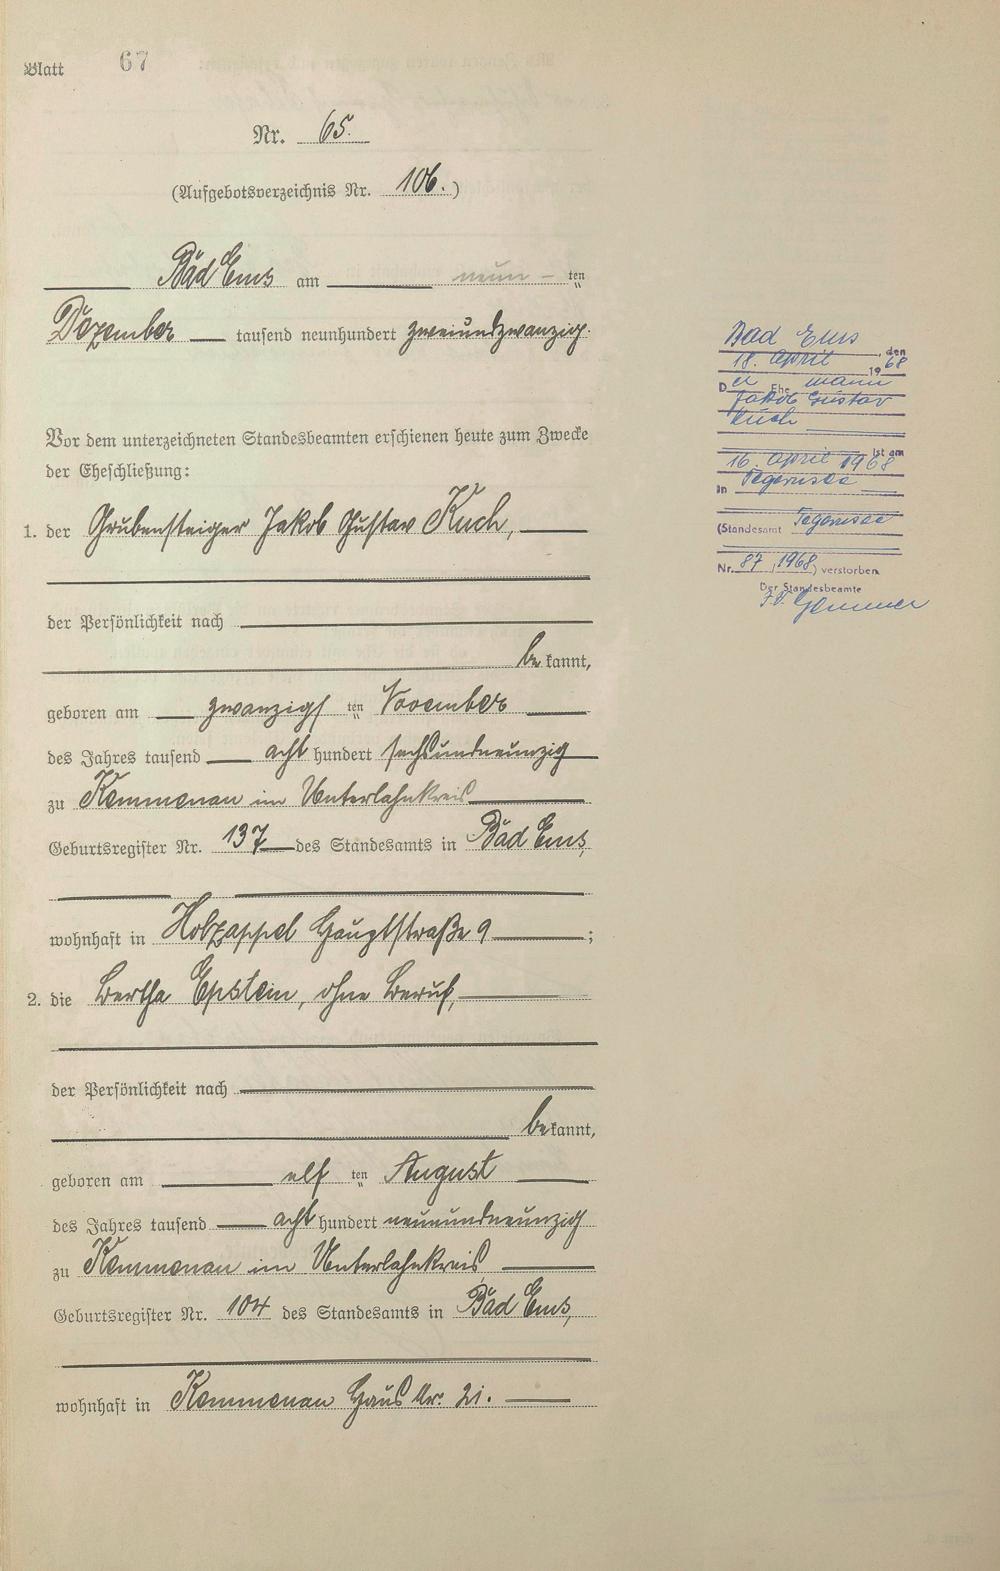 Blatt 67
Nr. 65.
(Aufgebotsverzeichnis Nr. 106.)
Bad Ems am neun-ten
Dezember tausend neunhundert zweiundzwanzig.
Vor dem unterzeichneten Standesbeamten erschienen heute zum Zwecke
der Eheschließung:
1. der Grubensteiger Jakob Gustav Kuch,
der Persönlichkeit nach
bekannt,
geboren am zwanzigsten November
des Jahres tausend acht hundert sechsundneunzig
zu Kemmenau im Unterlahnkreis
Geburtsregister Nr. 137 des Standesamts in Bad Ems,
wohnhaft in Holzappel Hauptstraße 9;
2. die Bertha Epstein, ohne Beruf,
der Persönlichkeit nach
bekannt,
geboren am elften August
des Jahres tausend acht hundert neunundneunzig
zu Kemmenau im Unterlahnkreis
Geburtsregister Nr. 104 des Standesamts in Bad Ems,
wohnhaft in Kemmenau Haus Nr. 21.
Bad Ems, den
18. April 1968
Der Ehemann
Jakob Gustav
Kuch
ist am
16. April 1968
in Tegernsee
(Standesamt Tegernsee
Nr. 87/1968) verstorben
Der Standesbeamte